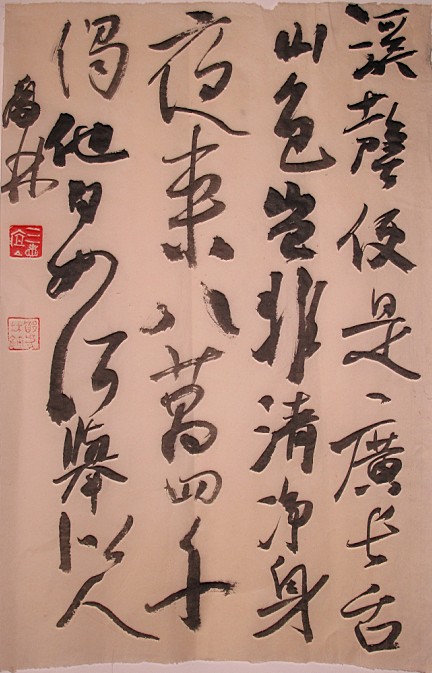 溪聲便是廣長舌
山色豈非清净身
夜来八萬四千
偈他日如何舉似人
林